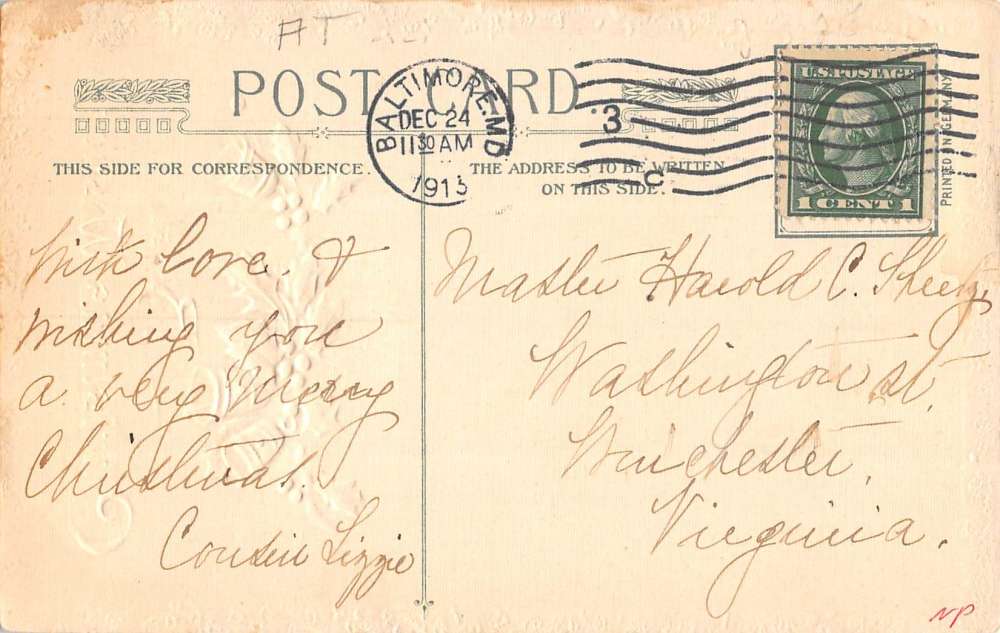 AT
POST CARD
BALTIMORE, MD
DEC 24
11 30 AM
1913
3
C
U.S. POSTAGE
1 CENT 1
PRINTED IN GERMANY
THIS SIDE FOR CORRESPONDENCE.
THE ADDRESS TO BE WRITTEN
ON THIS SIDE.
With love. &
wishing you
a very Merry
Christmas.
Cousin Lizzie
Master Harold C.
Washington st.
Winchester,
Virginia.
NP